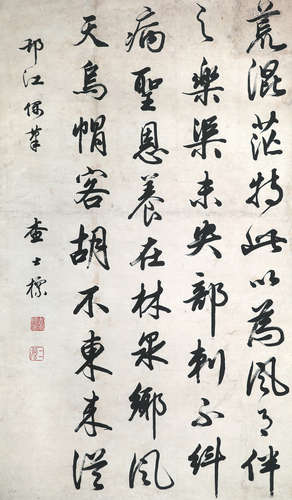 荒混茫特此以為風月伴
之樂渠未央部刺不糾
病聖恩養在林泉鄉風
天烏帽客胡不東來從
邗江偶筆
查士標